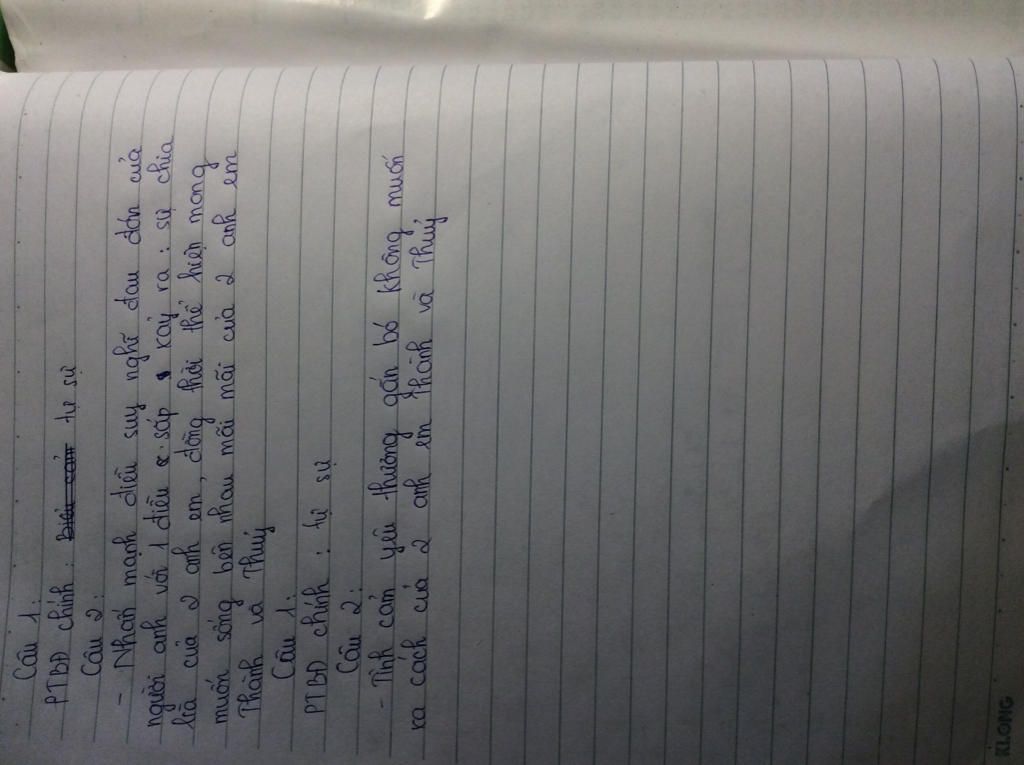 Câu 1:
PTBĐ chính: biểu cảm tự sự
Câu 2:
- Nhấn mạnh điều suy nghĩ đau đớn của
người anh với 1 điều sắp xảy ra: sự chia
lìa của 2 anh em, đồng thời thể hiện mong
muốn sống bên nhau mãi mãi của 2 anh em
Thành và Thuỷ
Câu 1:
PTBĐ chính: tự sự
Câu 2:
- Tình cảm yêu thương gắn bó không muốn
xa cách của 2 anh em Thành và Thuỷ
KLONG